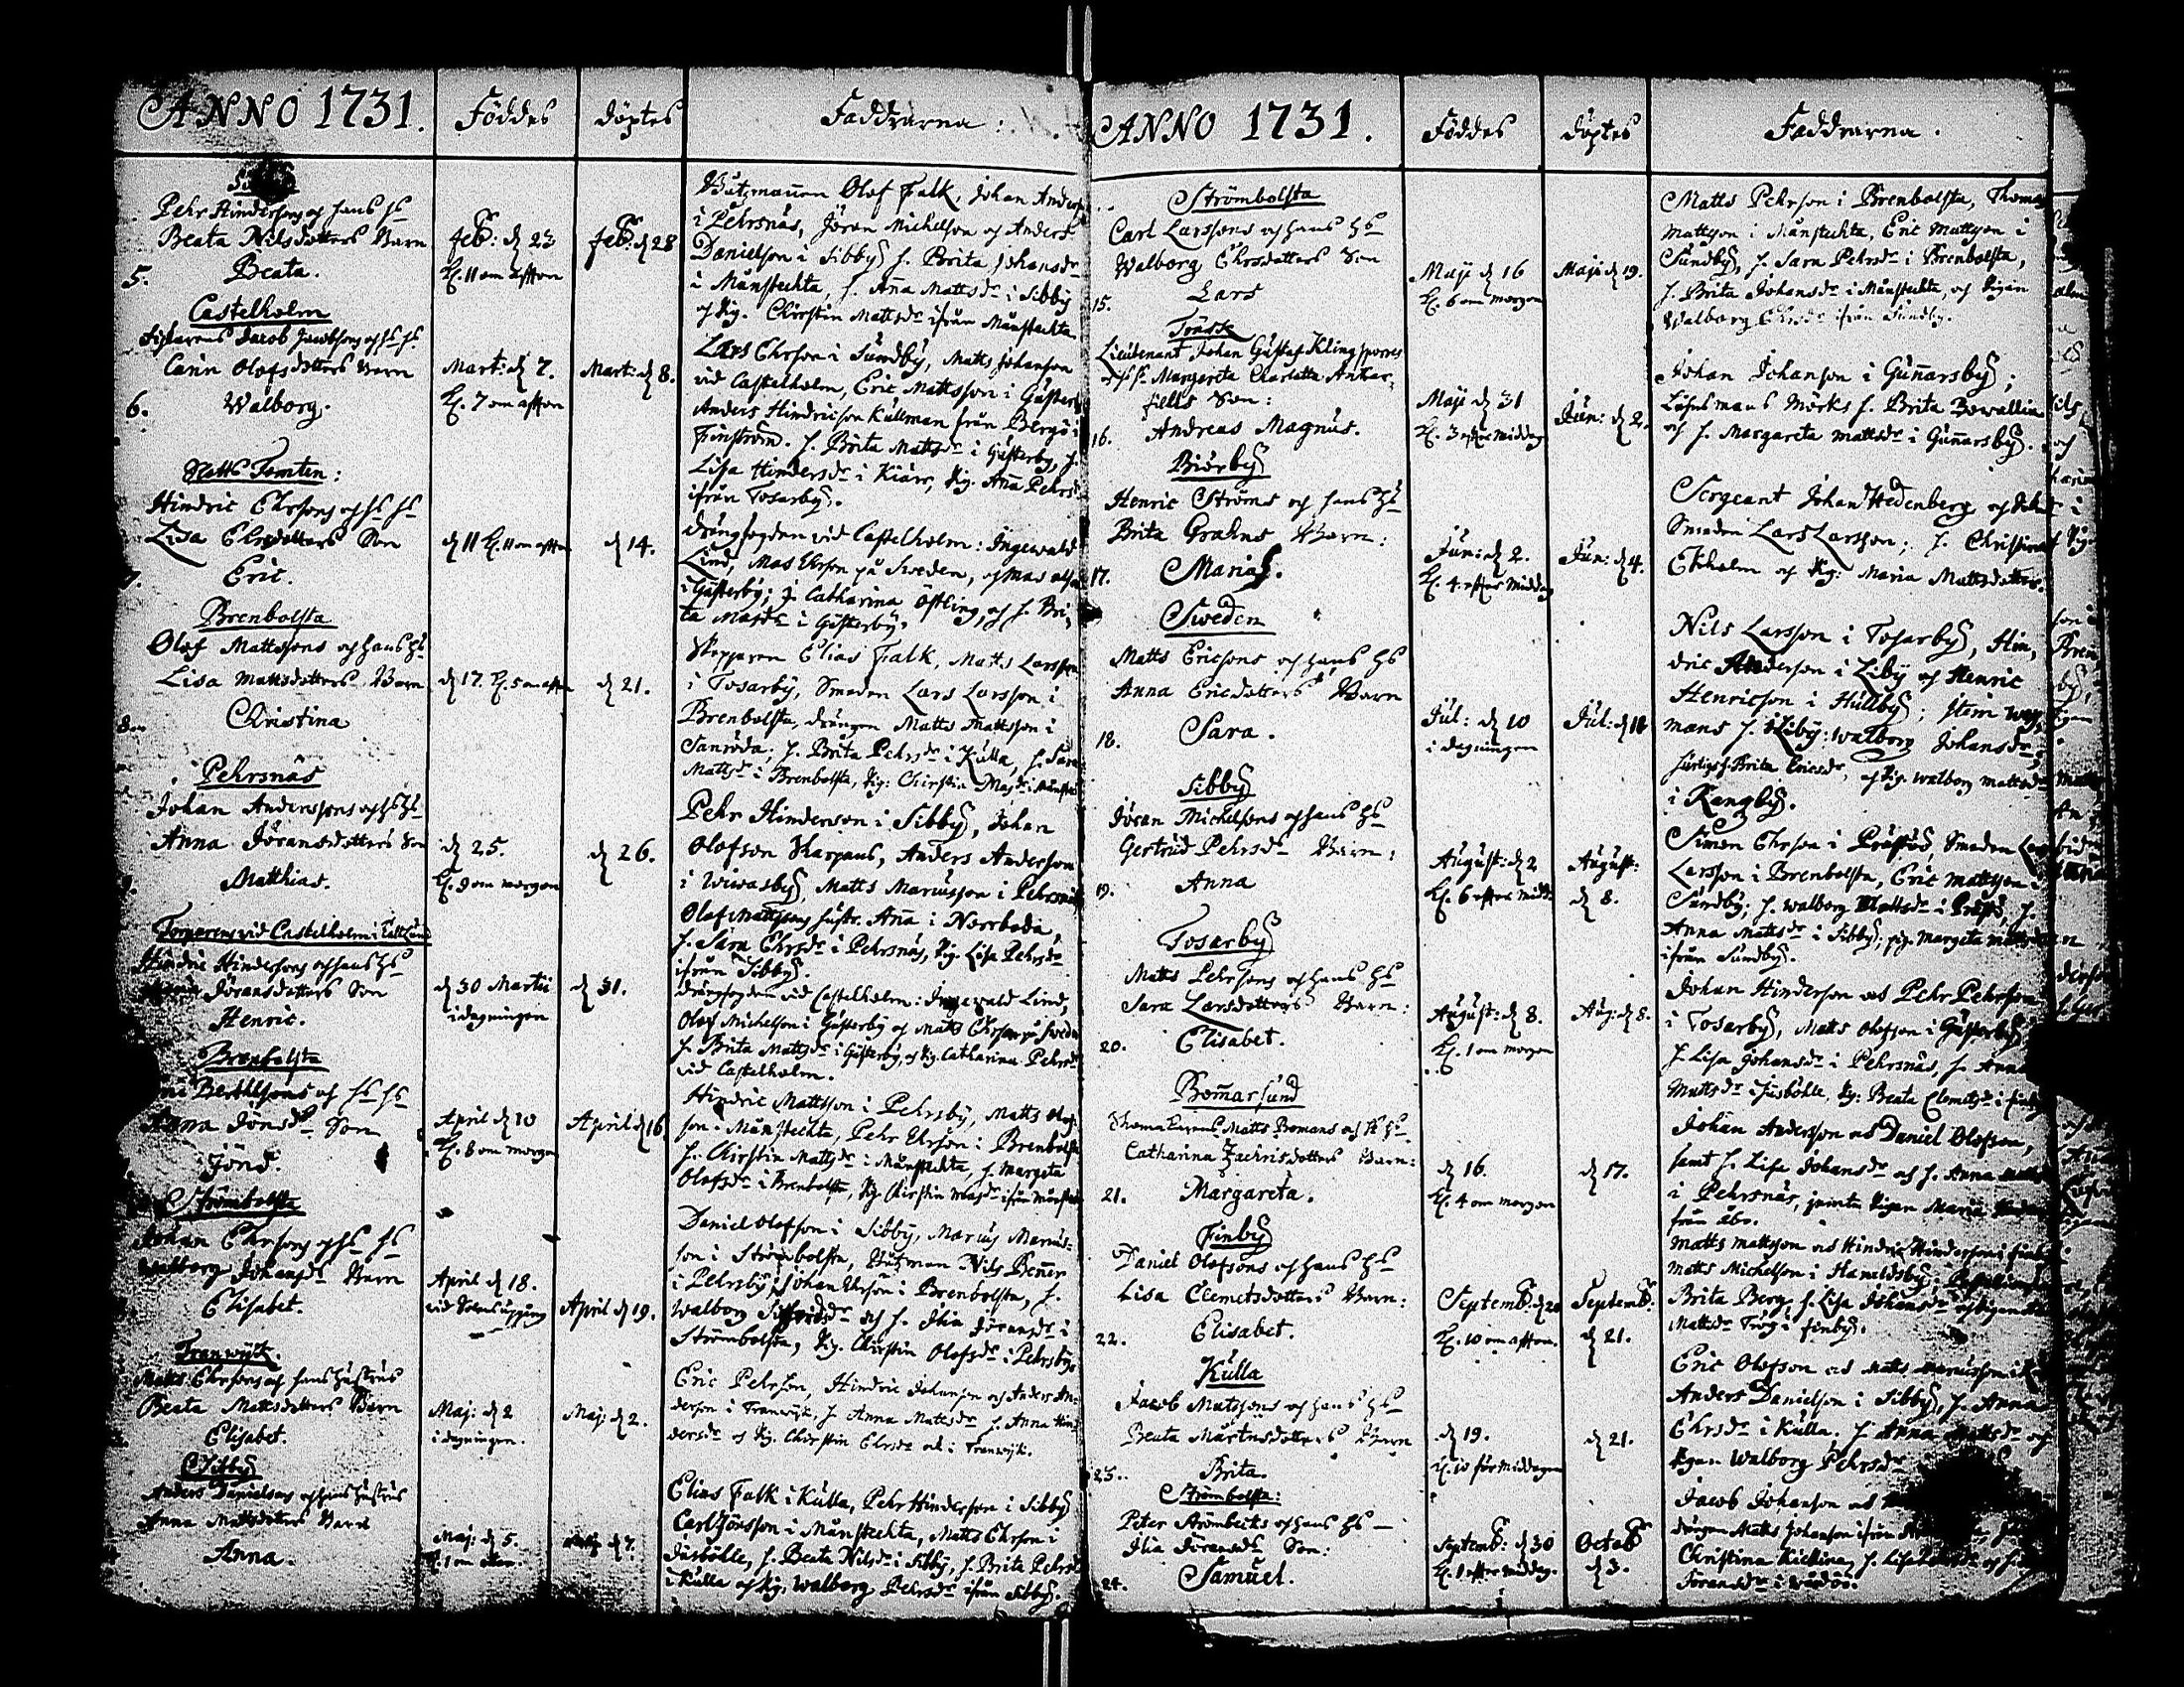 ANNO 1731. Föddes döptes Faddrarna:
Pehr Hindersons och hans hs
Beata Nilsdotters Barn
5. Beata.
Feb: d 23
Kl. 11 om afton
Feb: d 28
Båtzmannen Olof Falk, Johan Anders
i Pehrsnäs, Jöran Michelson och Anders
Danielson i Sibby, h. Brita Johansdr
i Månstechta, h. Anna Mattsdr i Sibby
och Pig. Chirstin Mattsdr ifrån Månstechta
Castelholm
Jacob Jacobsons och hs hs
Carin Olofsdotters Barn
6. Walborg.
Mart: d 7.
Kl. 7 om afton
Mart: d 8.
Lars Ehrson i Sundby, Matts Johanson
vid Castelholm, Eric Mattsson i Gästerby
Anders Hindricson Källman från Bergö i
Finström. h. Brita Mattsdr i Gästerby, h.
Lisa Hindersdr i Kiärr, Pig. Anna Pehrsdr
ifrån Tosarby.
Slotts Tomten:
Hindric Ehrsons och hs hs
Lisa Ehrsdotters Son
7. Eric.
d 11 Kl. 11 om afton
d 14.
Drängfogden vid Castelholm: Ingewald
Lind, Mas Ehrson på Sweden, och Mas
i Gästerby; J. Catharina Östling, och h. Bri-
ta Masdr i Gästerby.
Brenbolsta
Olof Mattsons och hans hs
Lisa Mattsdotters Barn
8. Christina
d 17. Kl. 5 om afton
d 21.
Skepparen Elias Falk, Matts Larsson
i Tosarby, Smeden Lars Larsson i
Brenbolsta, drängen Matts Mattsson i
Sanröda; h. Brita Pehrsdr i Kulla, h. Sara
Mattsdr i Brenbolsta, Pig: Chirstin Masdr i Månstechta
Pehrsnäs
Johan Anderssons och hs hs
Anna Jöransdotters Son
9. Matthias.
d 25.
Kl. 9 om morgon
d 26.
Pehr Hinderson i Sibby, Johan
Olofson Karpans, Anders Anderson
i Wiwasby, Matts Marcusson i Pehrsnäs
Olof Mattsons hustr. Anna i Norrboda,
h. Sara Ehrsdr i Pehrsnäs, Pig. Lisa Pehrsdr
ifrån Sibby.
Torparens vid Castelholm i
Hindric Hindersons och hans hs
Jöransdotters Son
Henric.
d 30 Martii
i dagningen
d 31.
Drängfogden vid Castelholm: Ingewald Lind,
Olof Michelson i Gästerby och Matts Ehrson på Sweden
h. Brita Mattsdr i Gästerby, och Pig. Catharina Pehrsdr
vid Castelholm.
Brenbolsta
Berthelsons och hs hs
Anna Jönsdr Son
Jöns.
April d 10
Kl. 8 om morgon
April d 16
Hindric Mattsson i Pehrsby, Matts Olof-
son i Månstechta, Pehr Ehrson i Brenbolsta
h. Chirstin Mattsdr i Månstechta, h. Margeta
Olofsdr i Brenbolsta, Pig. Chirstin Masdr ifrån Månstechta
Strömbolsta
Johan Ehrsons och hs hs
Walborg Johansdr Barn
Elisabet.
April d 18.
vid Solens upgång
April d 19.
Daniel Olofsson i Sibby, Marcus Marcus-
son i Strömbolsta, Båtzman Nils Benner
i Pehrsby, Johan Ehrson i Brenbolsta, h.
Walborg Sigfridsdr och h. Ilia Jöransdr i
Strömbolsta, Pig. Chirstin Olofsdr i Pehrsby.
Tranwyk.
Matts Ehrsons och hans hustrus
Beata Mattsdotters Barn
Elisabet.
Maj: d 2
i dagningen.
Maj: d 2.
Eric Pehrson, Hindric Johanson och Anders An-
derson i Tranwyk, h. Anna Mattsdr h. Anna Hin-
dersdr och Pig. Chirstin Ehrsdr i Tranwyk.
Sibby
Anders Danielsons och hans hustrus
Anna Mattsdotters Barn
Anna.
Maj: d 5.
Kl. 1 om
d 7.
Elias Falk i Kulla, Pehr Hinderson i Sibby
Carl Jönsson i Månstechta, Matts Ehrson i
Jusbölle, h. Beata Nilsdr i Sibby, h. Brita Pehrsdr
i Kulla och Pig. Walborg Pehrsdr ifrån Sibby.
ANNO 1731. Föddes döptes Faddrarna.
Strömbolsta
Carl Larssons och hans hs
Walborg Ehrsdotters Son
15. Lars
Maji d 16
Kl. 6 om morgon
Maji d 19.
Matts Pehrson i Brenbolsta, Thomas
Mattson i Månstechta, Eric Mattson i
Sundby, h. Sara Pehrsdr i Brenbolsta,
h. Brita Johansdr i Månstechta, och Pigan
Walborg Ehrsdr ifrån Sundby.
Lieutenant Johan Gustaf Klingsporres
och hs hs Margareta Charlotta Ankar-
fiells Son:
16. Andreas Magnus.
Maji d 31
Kl. 3 efter middag
Jun: d 2.
Johan Johanson i Gunnarsby;
Länsmans Mörks h. Brita
och h. Margareta Mattsdr i Gunnarsby.
Biörby
Henric Ströms och hans hs
Brita Grahns Barn:
17. Maria.
Jun: d 2.
Kl. 4. efter middag
Jun: d 4.
Sergeant Johan Hedenberg och
Smeden Lars Larsson; J. Christina
Ekholm och Pig: Maria Mattsdotter.
Sweden
Matts Ericsons och hans hs
Anna Ericsdotters Barn
18. Sara.
Jul: d 10
i dagningen
Jul: d 11
Nils Larsson i Tosarby, Hin-
dric Anderson i Liby och Henric
Henricson i Hullby; item
mans h. i Liby: Walborg Johansdr
h. Brita Ericsdr, och Pig. Walborg Mattsdr
i Kangby.
Sibby
Jöran Michelsons och hans hs
Gertrud Pehrsdr Barn:
19. Anna
August: d 2
Kl. 6 efter midd.
August:
d 8.
Simon Ehrson i Prästö, Smeden Lars
Larsson i Brenbolsta, Eric Mattson i
Sundby; h. Walborg Mattsdr i Prästö, h.
Anna Mattsdr i Sibby; pig. Margeta Mattsdr
ifrån Sundby.
Tosarby
Matts Pehrsons och hans hs
Sara Larsdotters Barn:
20. Elisabet.
August: d 8.
Kl. 1 om morgon
Aug: d 8.
Johan Hinderson och Pehr Pehrson
i Tosarby, Matts Olofson i Gästerby
h. Lisa Johansdr i Pehrsnäs, h. Anna
Mattsdr i Jusbölle, Pig: Beata Clemetsdr i Finby
Bomarsund
Matts Bomans och hs hs
Catharina Zachrisdotters Barn:
21. Margareta.
d 16.
Kl. 4 om morgon
d 17.
Johan Andersson och Daniel Olofsson,
samt h. Lisa Johansdr och h. Anna
i Pehrsnäs, jämte Pigan Maria
från åbo.
Finby
Daniel Olofsons och hans hs
Lisa Clemetsdotters Barn:
22. Elisabet.
Septemb: d 20
Kl. 10 om afton.
Septemb:
d 21.
Matts Mattson och Hindric Hinderson i Finby
Matts Michelson i Haraldsby;
Brita Berg, h. Lisa Johansdr och Pigan
Mattsdr i Finby.
Kulla
Jacob Matsons och hans hs
Beata Mårtensdotters Barn
23. Brita.
d 19.
Kl. 10 för Middagen
d 21.
Eric Olofson och Matts Marcusson i
Anders Danielson i Sibby, h. Anna
Ehrsdr i Kulla. h. Anna Mattsdr och
Pigan Walborg Pehrsdr
Strömbolsta:
Peter Strömbecks och hans hs
Ilia Jöransdr Son:
24. Samuel.
Septemb: d 30
Kl. 1 efter middag.
Octob
d 3.
Jacob Johanson och
drängen Matts Johanson ifrån
Christina Kiellina, h. Lisa
Jöransdr i Wårdö.